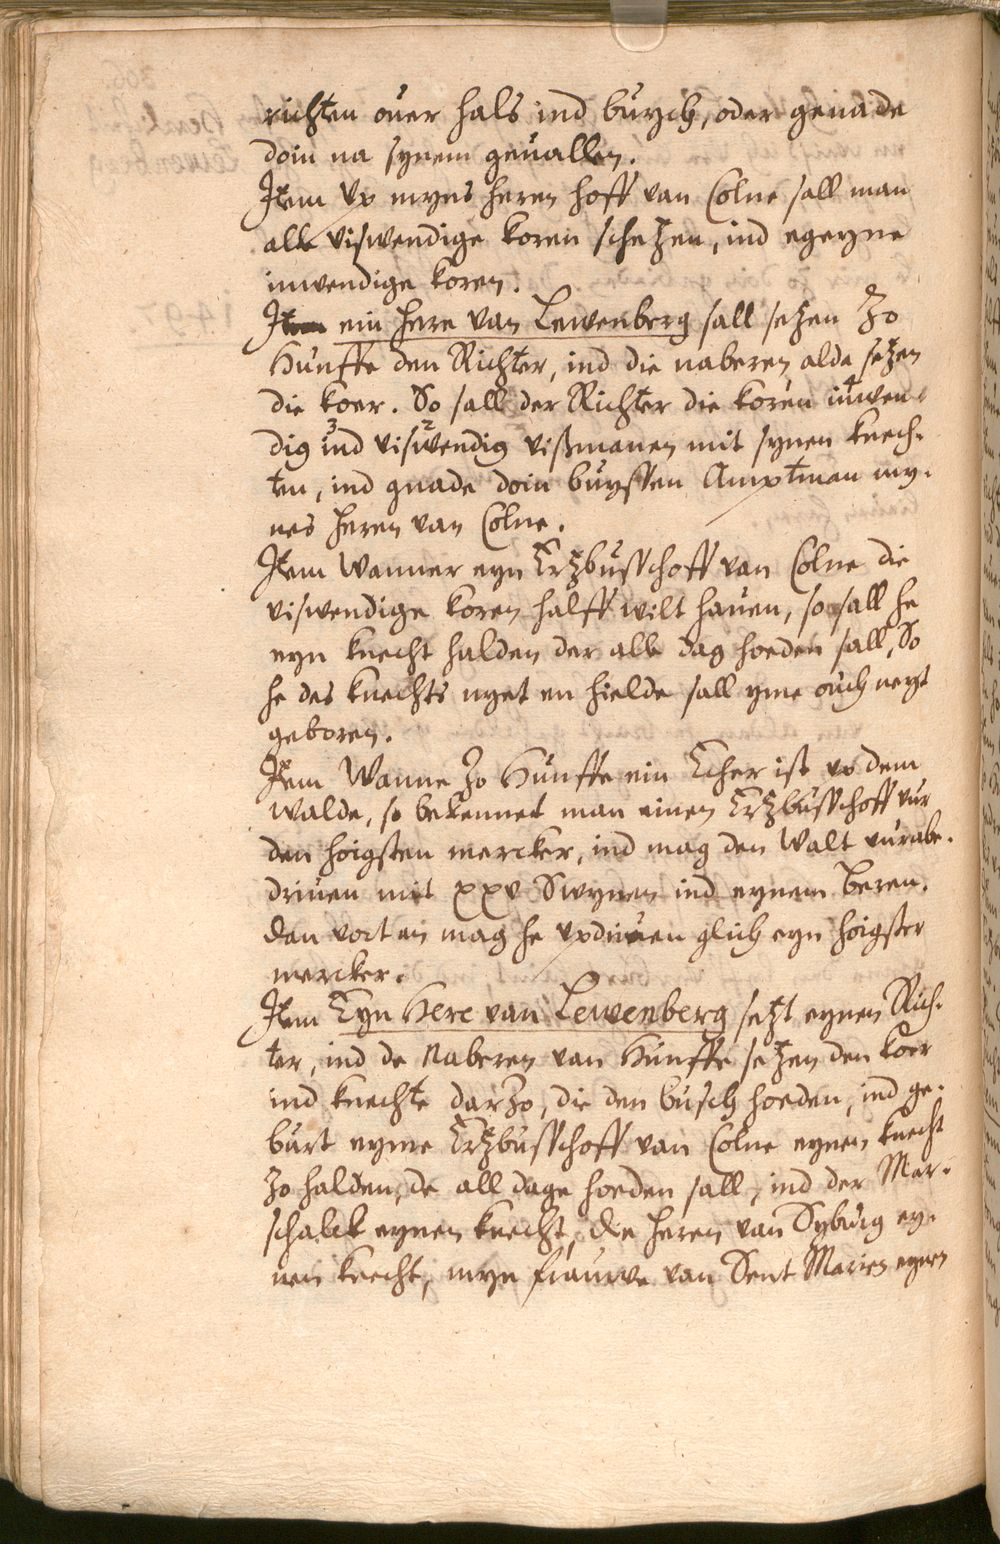 richten ouer hals ind buych, oder genade
doin na synem geuallen.
Item Vp myns heren hoff van Colne sall man
alle viswendige koren schetzen, ind egeyne
inwendige koren.
Item ein here van Lewenberg sall setzen zo
Hunffe den Richter, ind die naberen alda setzen
die koer. So sall der Richter die koren inwen-
dig ind viswendig vißmanen mit synen knech-
ten, ind gnade doin buyssen Amptman my-
nes heren van Colne.
Item Wanner eyn Ertzbusschoff van Colne die
viswendige koren halff wilt hauen, so sall he
eyn knecht halden der alle dag hoeden sall, So
he des knechts nyet en hielde sall yme ouch neyt
geboren.
Item Wanne zo Hunffe ein Echer ist vp dem
walde, so bekennet man einen Ertzbusschoff vur
den hoigsten mercker, ind mag den Walt vurabe-
driuen mit xxv Swynen ind eynem Beren.
dan vort an mag he vpdriuen glich eyn hoigster
mercker.
Item Eyn Here van Lewenberg setzt eynen Rich-
ter, ind de Naberen van Hunffe setzen den koer
ind knechte darzo, die den busch hoeden, ind ge-
burt eyme Ertzbusschoff van Colne eynen knecht
zo halden, de all dage hoeden sall, ind der Mar-
schalck eynen knecht, die heren van Syburg ey-
nen knecht, myn frauwe van Sent Marien eynen